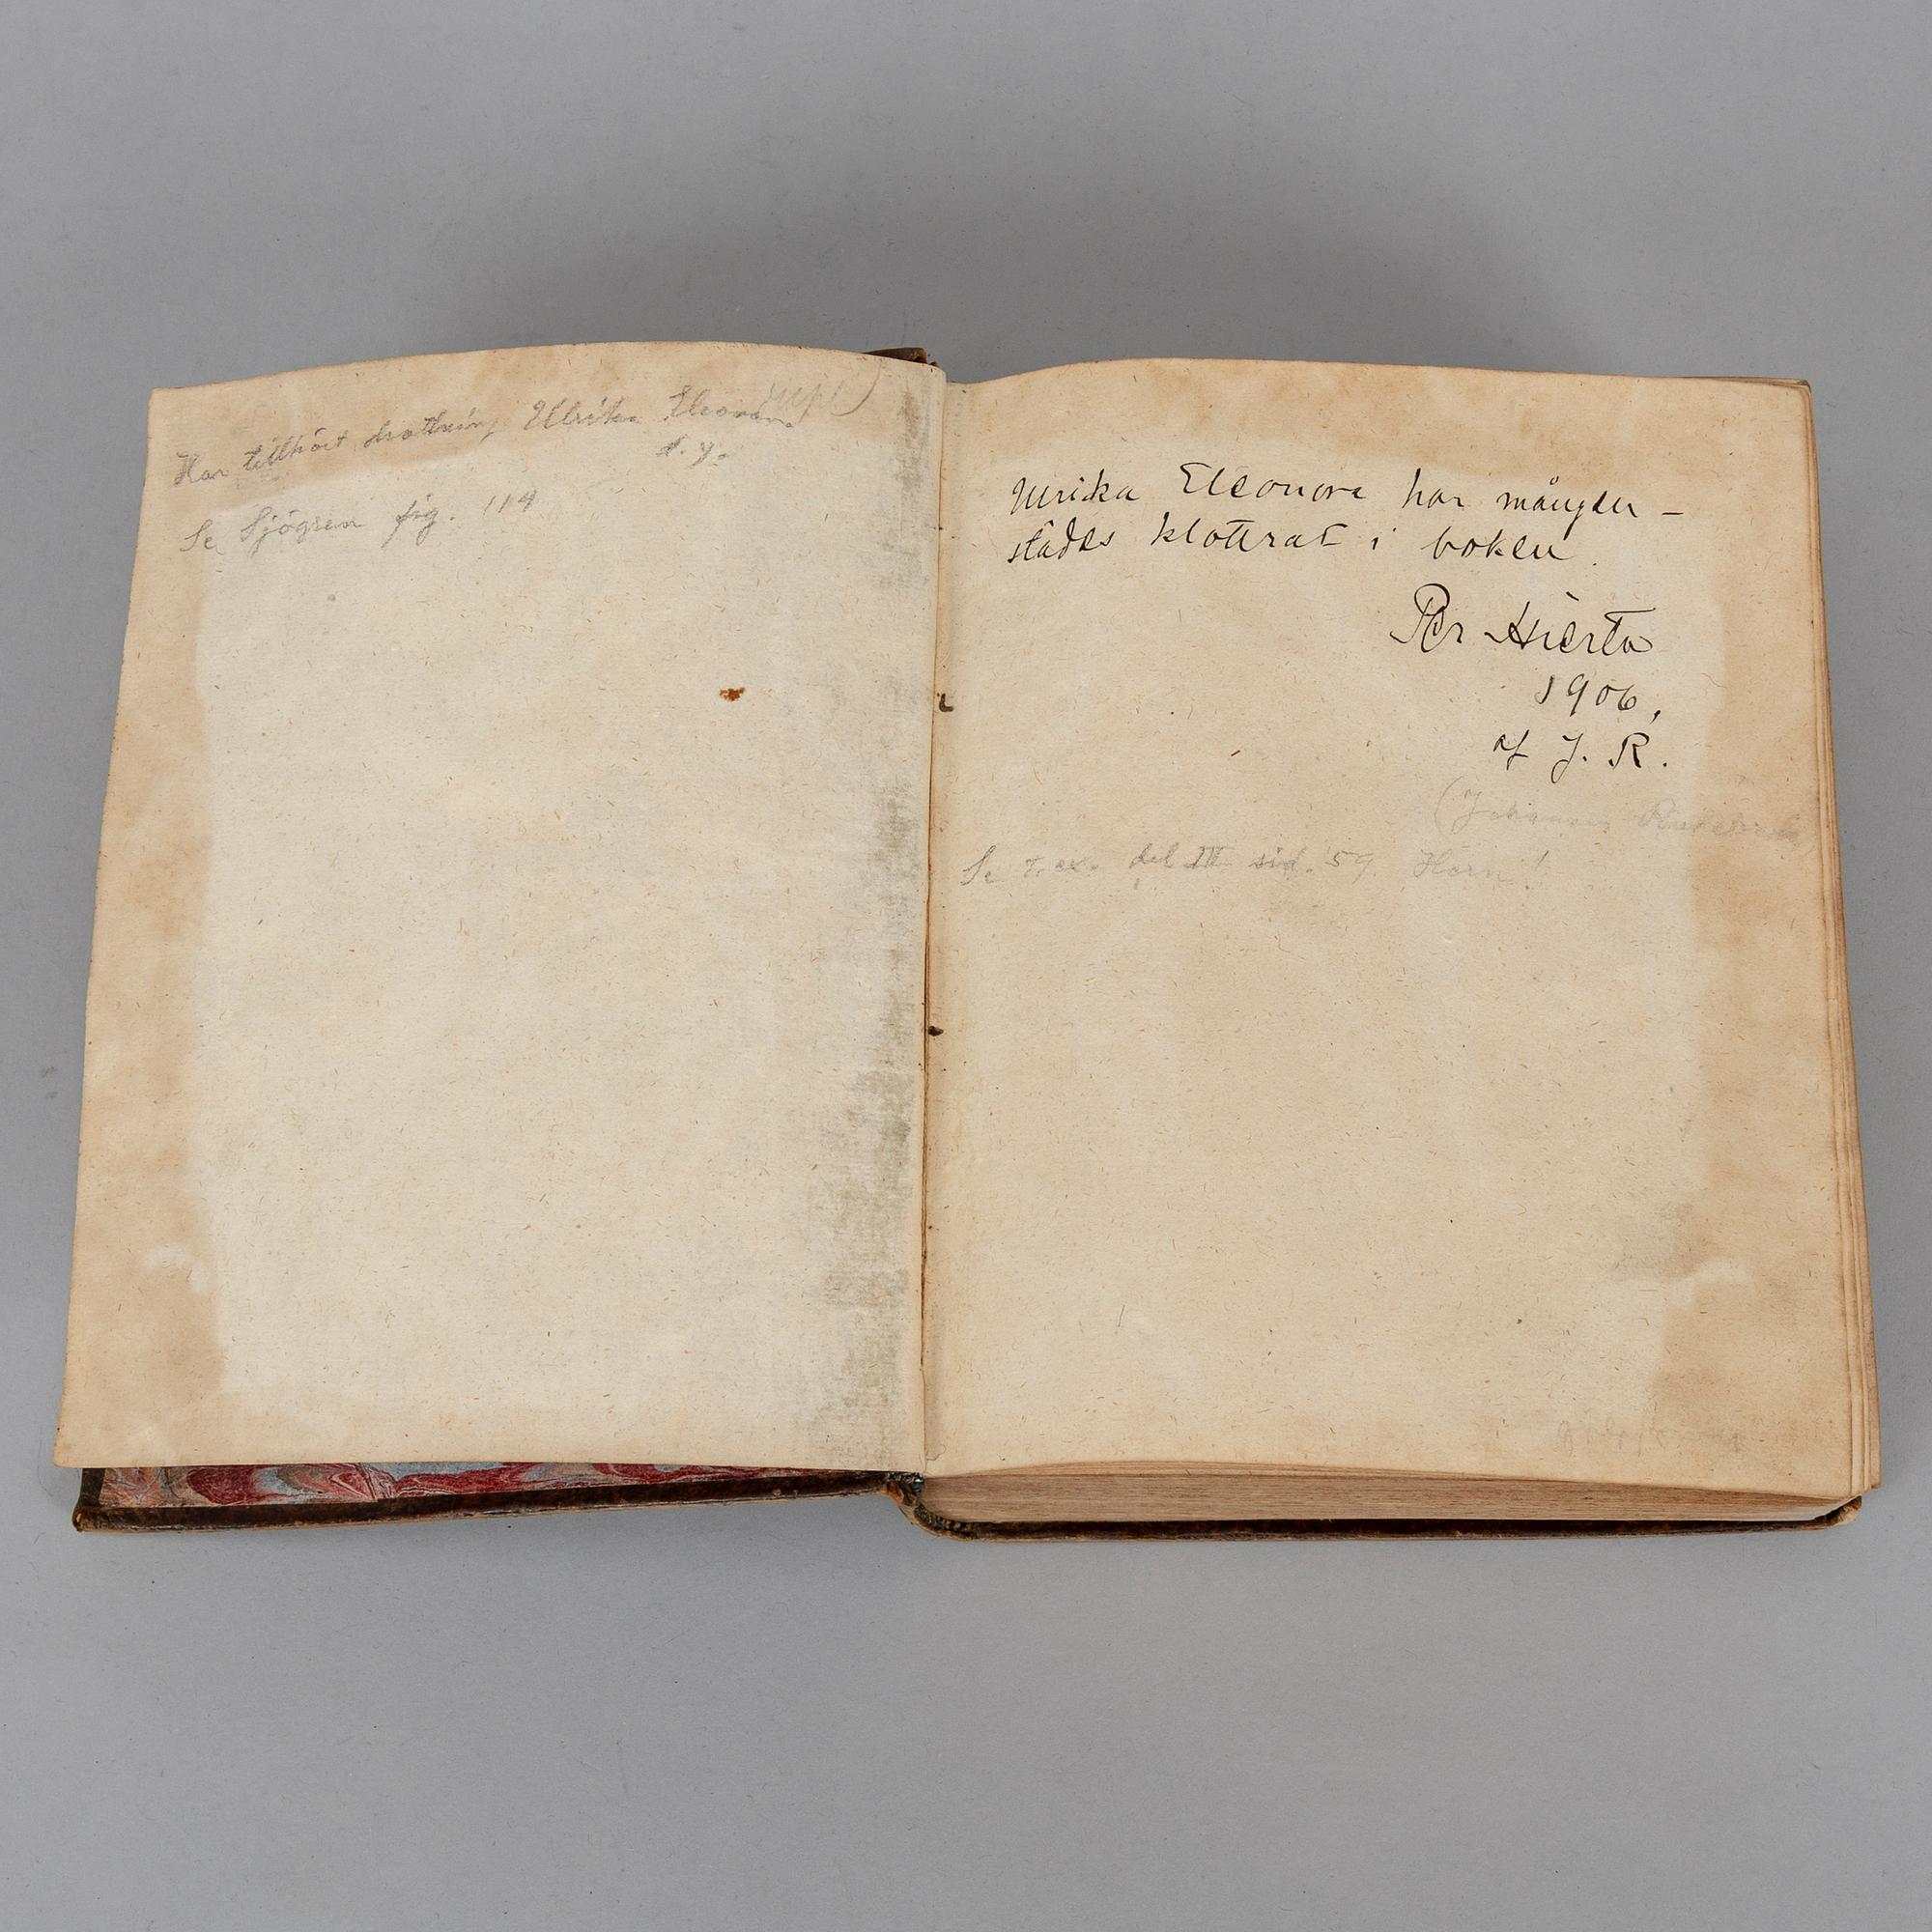 Har tillhört drottning Ulrika Eleonora
d. y.
Se Sjögren fig. 114
Ulrika Eleonora har mången-
städes klottrat i boken.
Per Hierta
1906,
af J. R.
(Johannes
Se t. ex. del IV sid. 59. Horn!